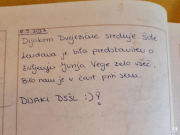 Dijakom Dvojezične srednje šole
Lendava je bila predstavitev o
življenju Jurija Vege zelo všeč.
Bilo nam je v čast priti sem.
DIJAKI DSŠL :)